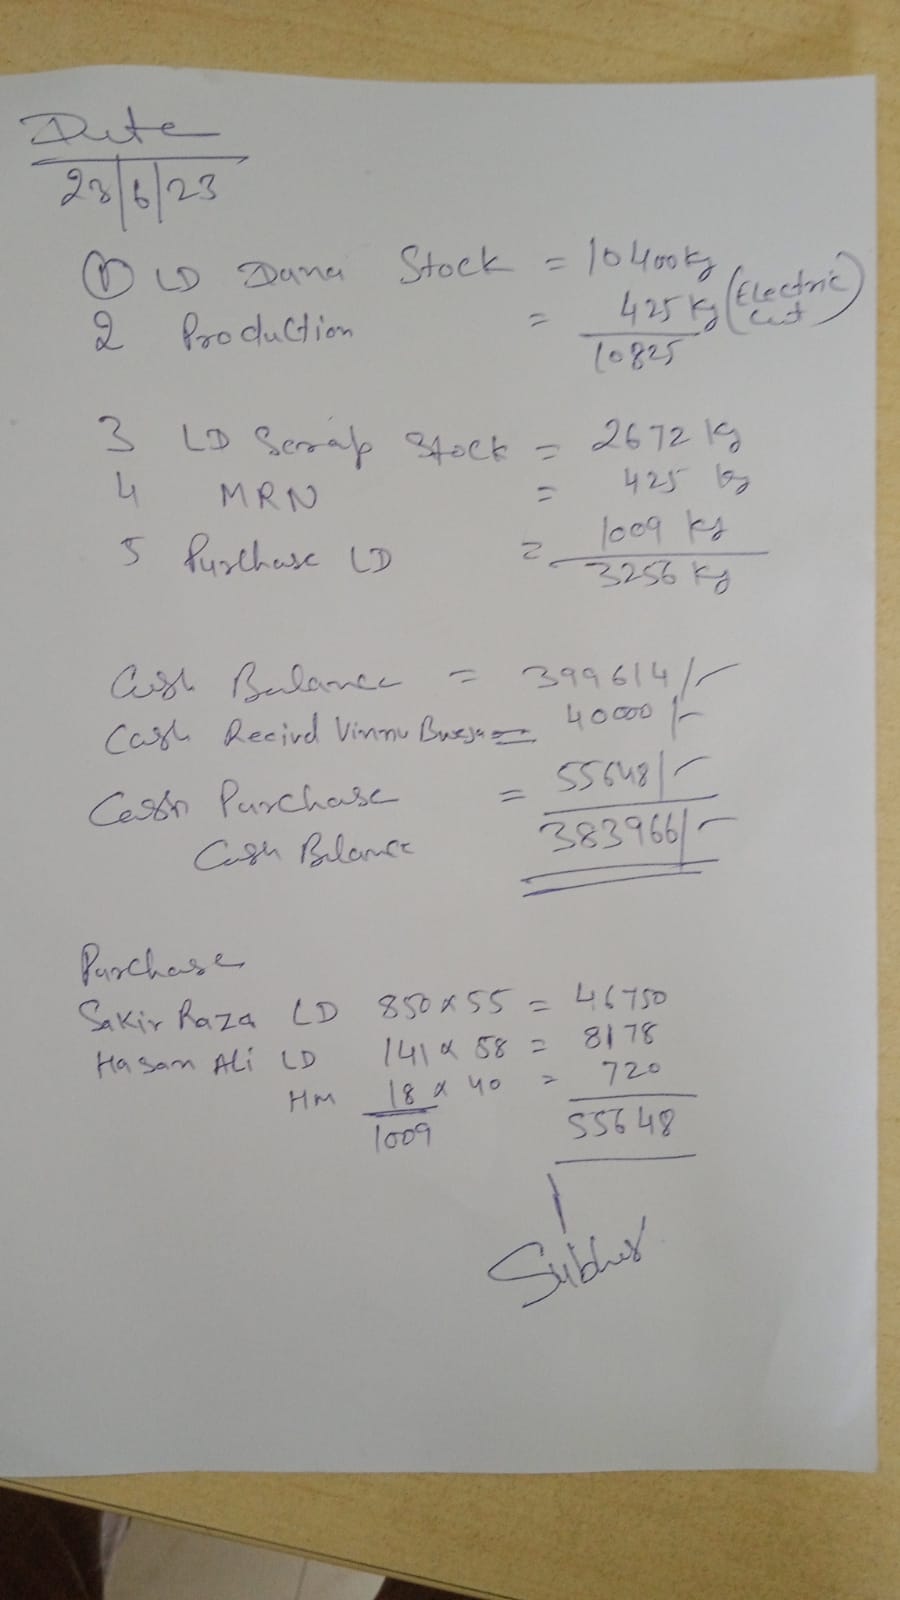 Date
23/6/23
① LD Dana Stock = 10400kg
2 Production = 425 kg (Electric cut)
10825
3 LD Scrap Stock = 2672 kg
4 MRN = 425 kg
5 Purchase LD = 1009 kg
3256 kg
Cash Balance = 399614/-
Cash Recived Vinnu = 40000/-
Cash Purchase = 55648/-
Cash Balance 383966/-
Purchase
Sakir Raza LD 850 x 55 = 46750
Hasan Ali LD 141 x 58 = 8178
HM 18 x 40 = 720
1009 55648